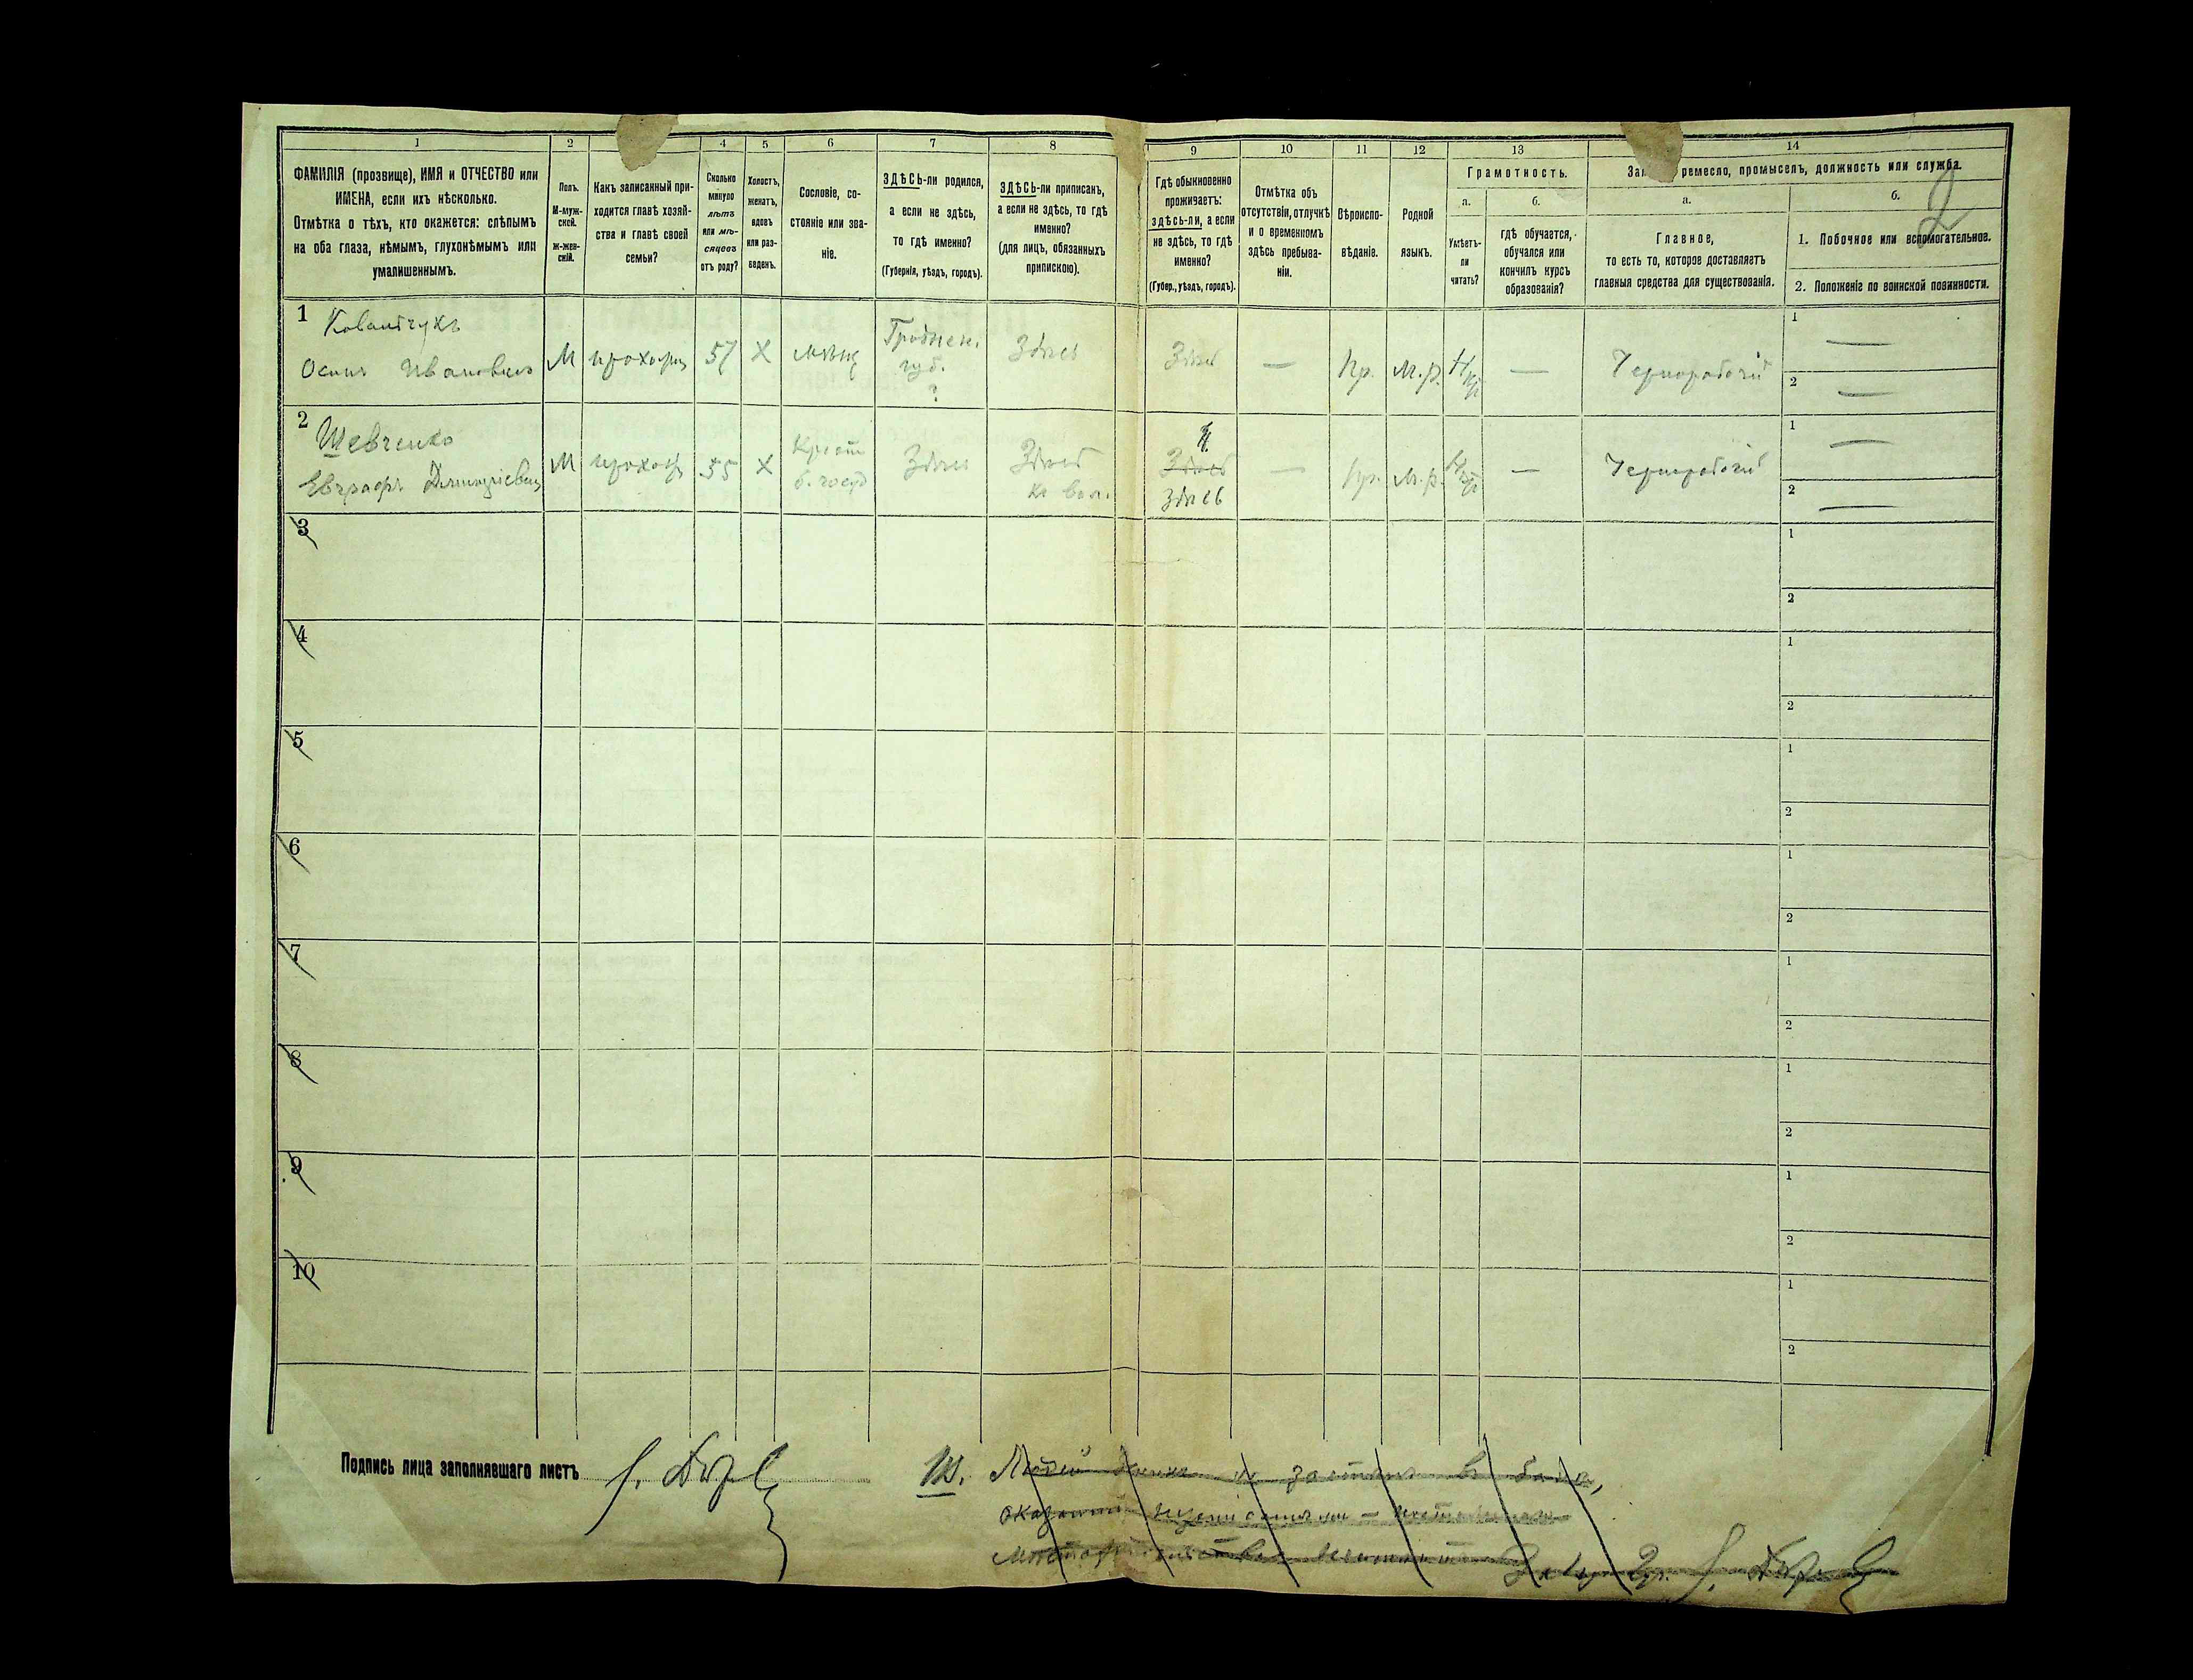 1
2
4
5
6
7
8
9
10
11
12
13
14
ФАМИЛІЯ (прозвище), ИМЯ и ОТЧЕСТВО или
ИМЕНА, если ихъ нѣсколько.
Отмѣтка о тѣхъ, кто окажется: слѣпымъ
на оба глаза, нѣмымъ, глухонѣмымъ или
умалишеннымъ.
Полъ.
М-муж-
ской.
Ж-жен-
скій.
Какъ записанный при-
ходится главѣ хозяй-
ства и главѣ своей
семьи?
Сколько
минуло
лѣтъ
или мѣ-
сяцевъ
отъ роду?
Холостъ,
женатъ,
вдовъ
или раз-
веденъ.
Сословіе, со-
стояніе или зва-
ніе.
ЗДѢСЬ-ли родился,
а если не здѣсь,
то гдѣ именно?
(Губернія, уѣздъ, городъ).
ЗДѢСЬ-ли приписанъ,
а если не здѣсь, то гдѣ
именно?
(для лицъ, обязанныхъ
припискою).
Гдѣ обыкновенно
проживаетъ:
здѣсь-ли, а если
не здѣсь, то гдѣ
именно?
(Губер., уѣздъ, городъ).
Отмѣтка объ
отсутствіи, отлучкѣ
и о временномъ
здѣсь пребыва-
ніи.
Вѣроиспо-
вѣданіе.
Родной
языкъ.
Грамотность.
а.
Умѣетъ-
ли
читать?
б.
гдѣ обучается,
обучался или
кончилъ курсъ
образованія?
ремесло, промыселъ, должность или служба.
а.
Главное,
то есть то, которое доставляетъ
главныя средства для существованія.
б.
2
1. Побочное или вспомогательное.
2. Положеніе по воинской повинности.
1
Ковальчукъ
Осипъ Ивановичъ
М
57
Х
мѣщ
Гроднен.
губ.
?
Здѣсь
Здѣсь
—
Пр.
М.р.
—
Чернорабочій
1 —
2 —
2
Шевченко
Евграфъ Дмитріевич
М
55
Х
Крест
б. госуд
Здѣсь
Здѣсь
Здѣсь
Здѣсь
—
Пр.
М.р.
—
Чернорабочій
1 —
2 —
3
1
2
4
1
2
5
1
2
6
1
2
7
1
2
8
1
2
9
1
2
10
1
2
Подпись лица заполнявшаго листъ